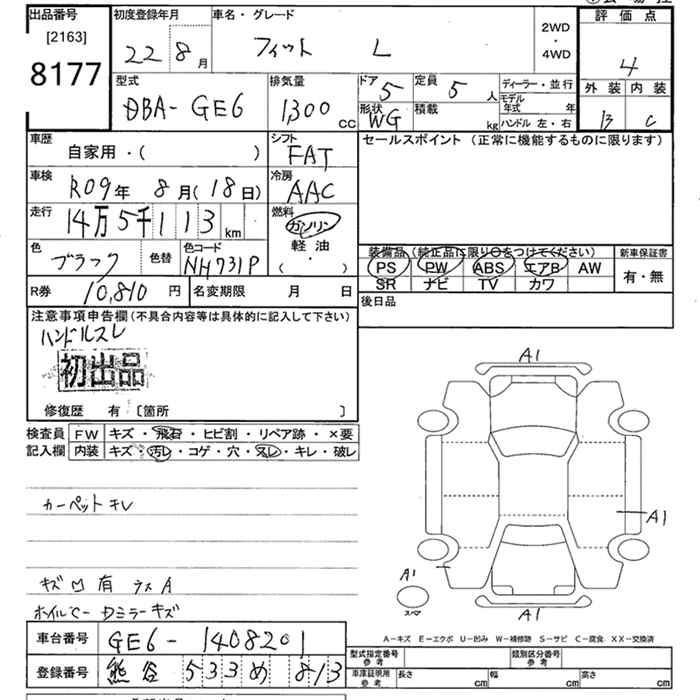 出品番号
[2163]
8177
初度登録年月
22 8月
車名・グレード
フィット L
2WD
・
4WD
評価点
4
外装 内装
B C
型式
DBA-GE6
排気量
1,300 cc
ドア 5
定員 5 人
形状 WG
積載 kg
ディーラー・並行
モデル年式 年
ハンドル 左・右
車歴
自家用・( )
シフト
FAT
セールスポイント (正常に機能するものに限ります)
車検
R09年 8月(18日)
冷房
AAC
走行
14万5千113km
燃料
ガソリン
軽油
( ・ )
色
ブラック
色替
色コード
NH731P
装備品 (純正品に限り○をつけてください)
PS PW ABS エアB AW
SR ナビ TV カワ
新車保証書
有・無
R券 10,810円
名変期限 月 日
後日品
注意事項申告欄 (不具合内容等は具体的に記入して下さい)
ハンドルスレ
初出品
修復歴 有 〔箇所 〕
検査員 記入欄
FW キズ・飛石・ヒビ割・リペア跡・×要
内装 キズ・汚レ・コゲ・穴・スレ・キレ・破レ
カーペットキレ
キズ凹有 ウスA
ホイルC ドミラーキズ
A1
A1
A1
スペア
A1
A-キズ E-エクボ U-凹み W-補修跡 S-サビ C-腐食 XX-交換済
車台番号 GE6-1408201
登録番号 熊谷 533 め 813
型式指定番号 参考
類別区分番号 参考
車庫証明用 参考
長さ cm
幅 cm
高さ cm